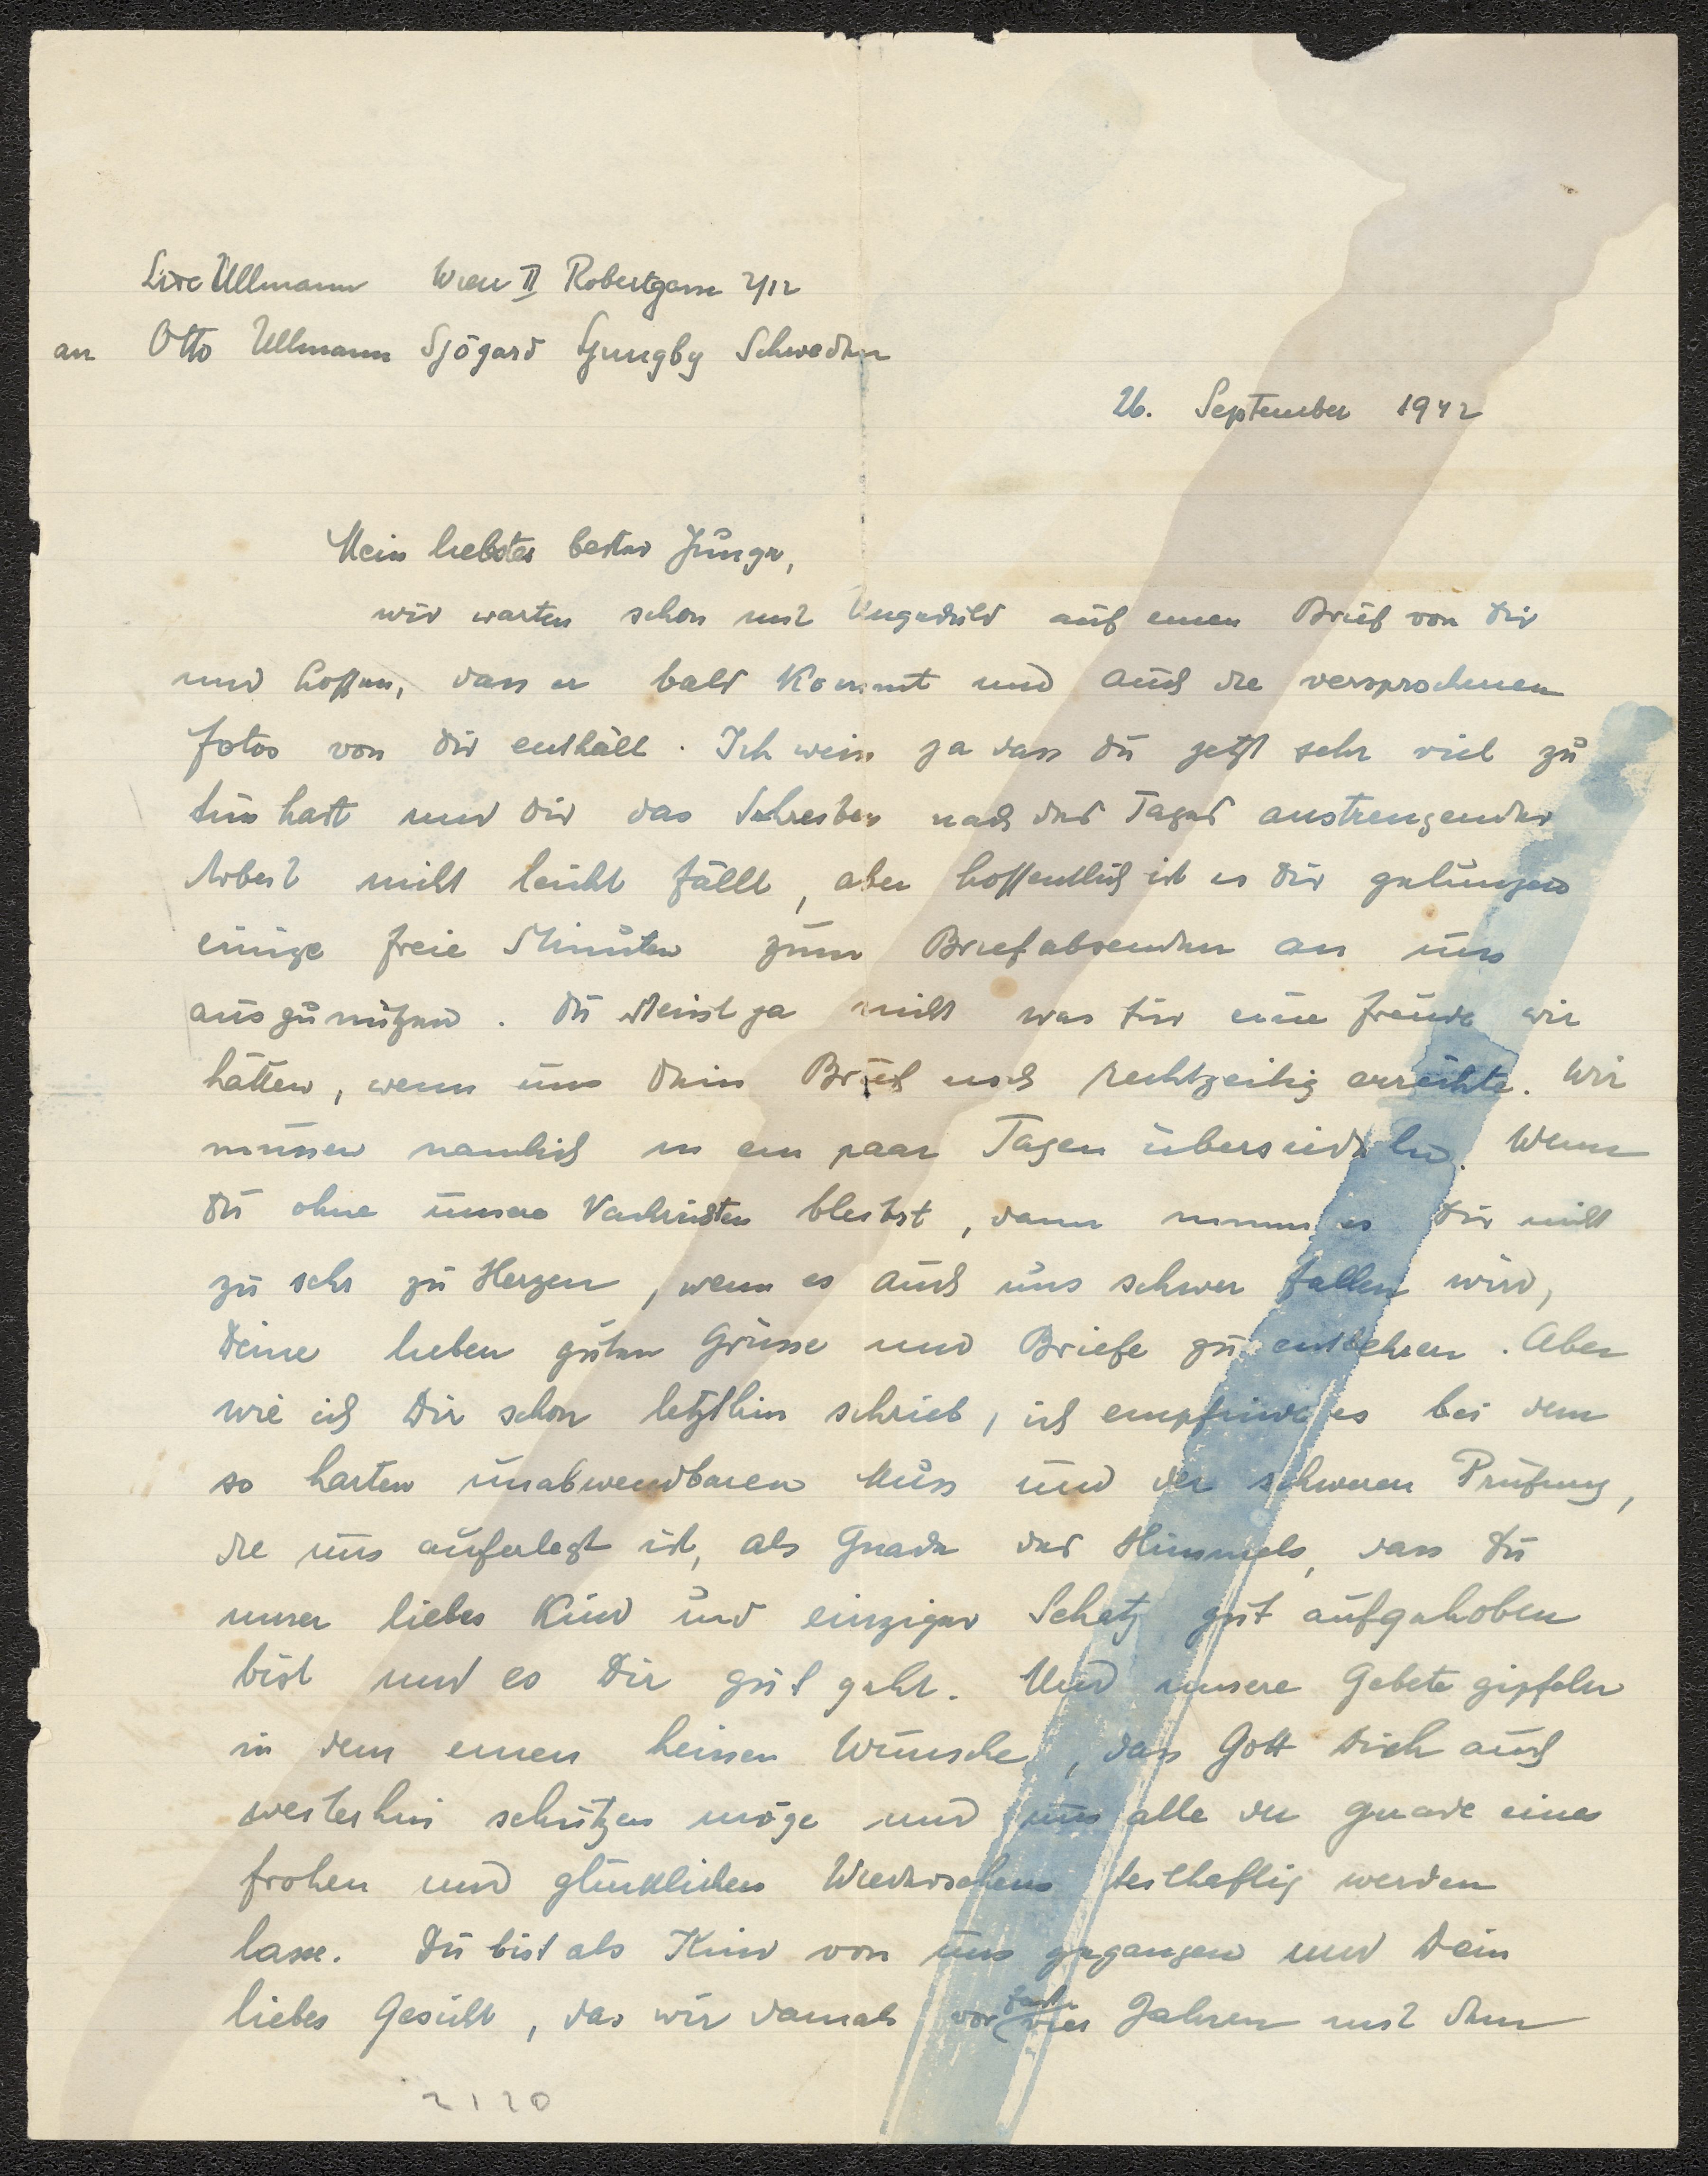 Lise Ullmann Wien II Robertgasse 2/12
an Otto Ullmann Sjögard Ljungby Schweden
26. September 1942
Mein liebster bester Junge,
wir warten schon mit Ungeduld auf einen Brief von dir
und hoffen, dass er bald kommt und auch die versprochenen
Fotos von dir enthält. Ich weiss ja dass du jetzt sehr viel zu
tun hast und dir das Schreiben nach des Tages anstrengender
Arbeit nicht leicht fällt, aber hoffentlich ist es dir gelungen
einige freie Minuten zum Briefabsenden an uns
auszunützen. Du weisst ja nicht was für eine Freude wir
hätten, wenn uns dein Brief noch rechtzeitig erreichte. Wir
müssen nämlich in ein paar Tagen übersiedeln. Wenn
du ohne unsere Nachrichten bleibst, dann nimm es dir nicht
zu sehr zu Herzen, wenn es auch uns schwer fallen wird,
Deine lieben guten Grüsse und Briefe zu entbehren. Aber
wie ich Dir schon letzthin schrieb, ich empfinde es bei dem
so harten unabwendbaren Muss und der schweren Prüfung,
die uns auferlegt ist, als Gnade des Himmels, dass Du
unser liebes Kind und einziger Schatz gut aufgehoben
bist und es Dir gut geht. Und unsere Gebete gipfeln
in dem einen heissen Wunsche, dass Gott Dich auch
weiterhin schützen möge und uns alle der Gnade eines
frohen und glücklichen Wiedersehens teilhaftig werden
lasse. Du bist als Kind von uns gegangen und Dein
liebes Gesicht, das wir damals vor fast vier Jahren mit dem
2120